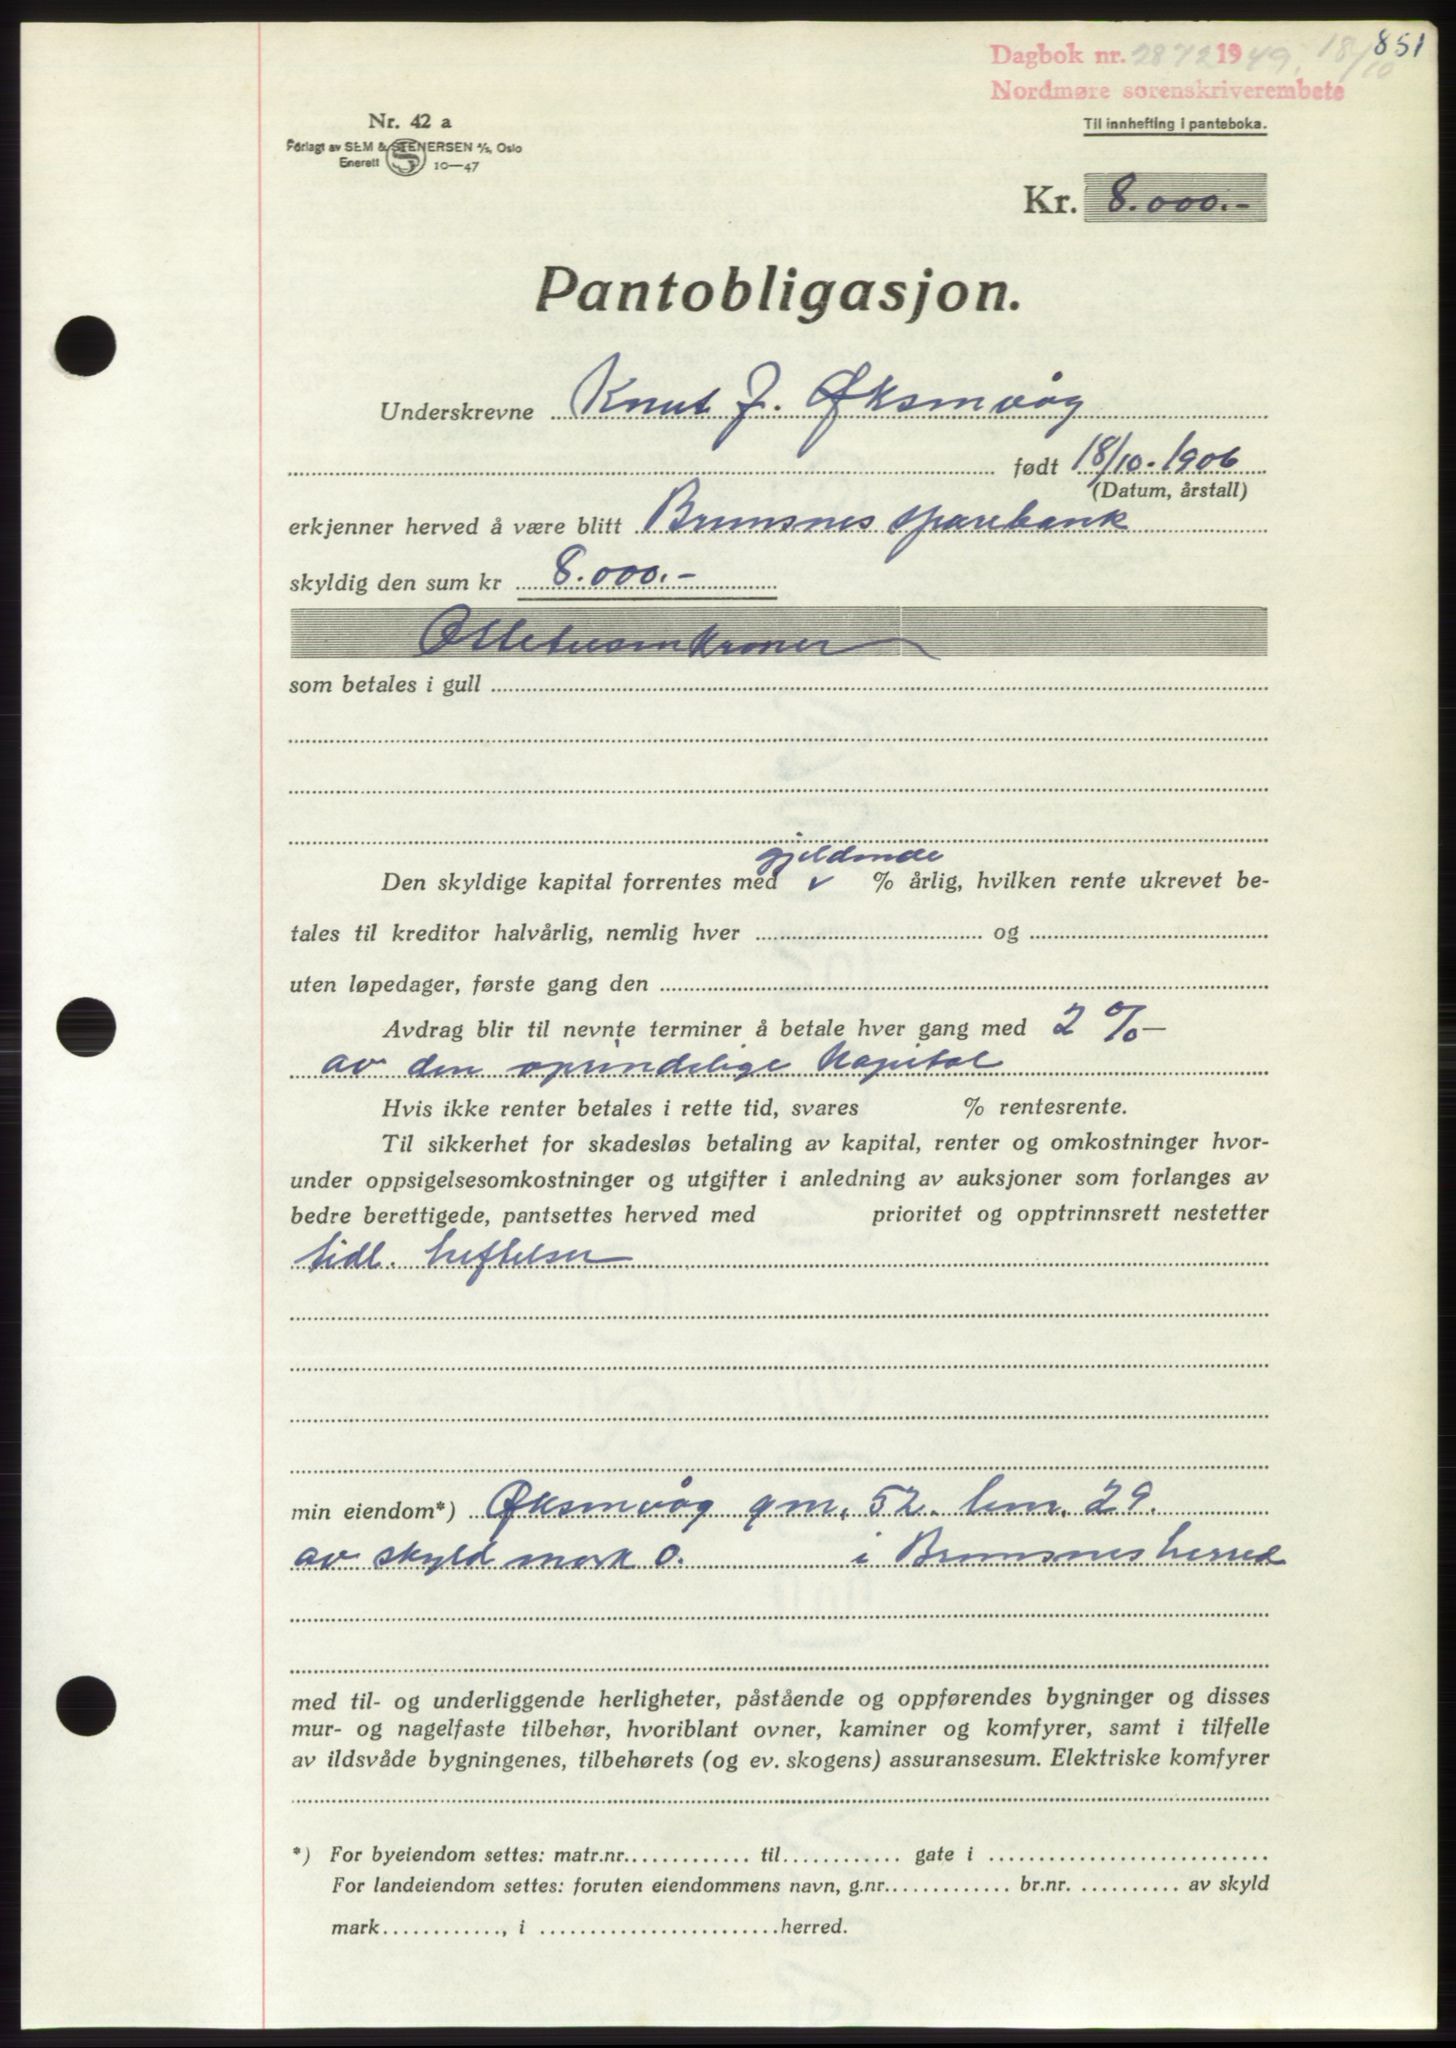 851
Dagbok nr. 2872 1949. 18/10
Nordmøre sorenskriverembete
Til innhefting i panteboka.
Nr. 42 a
Forlagt av SEM & STENERSEN A/S, Oslo
Enerett S 10—47
Kr. 8.000.-
Pantobligasjon.
Underskrevne Knut J. Øksmvåg
født 18/10.1906
(Datum, årstall)
erkjenner herved å være blitt Bremsnes sparebank
skyldig den sum kr 8.000.-
Ottetusenkroner
som betales i gull
gjeldende
Den skyldige kapital forrentes med % årlig, hvilken rente ukrevet be-
tales til kreditor halvårlig, nemlig hver og
uten løpedager, første gang den
Avdrag blir til nevnte terminer å betale hver gang med 2 %
av den oprindelige Kapital
Hvis ikke renter betales i rette tid, svares % rentesrente.
Til sikkerhet for skadesløs betaling av kapital, renter og omkostninger hvor-
under oppsigelsesomkostninger og utgifter i anledning av auksjoner som forlanges av
bedre berettigede, pantsettes herved med prioritet og opptrinnsrett nestetter
tidl. heftelser
min eiendom*) Øksmvåg gnr. 52. bnr. 29.
av skyld mark 0. i Bremsnes herred
med til- og underliggende herligheter, påstående og oppførendes bygninger og disses
mur- og nagelfaste tilbehør, hvoriblant ovner, kaminer og komfyrer, samt i tilfelle
av ildsvåde bygningenes, tilbehørets (og ev. skogens) assuransesum. Elektriske komfyrer
*) For byeiendom settes: matr.nr. til gate i
For landeiendom settes: foruten eiendommens navn, g.nr. br.nr. av skyld
mark, i herred.